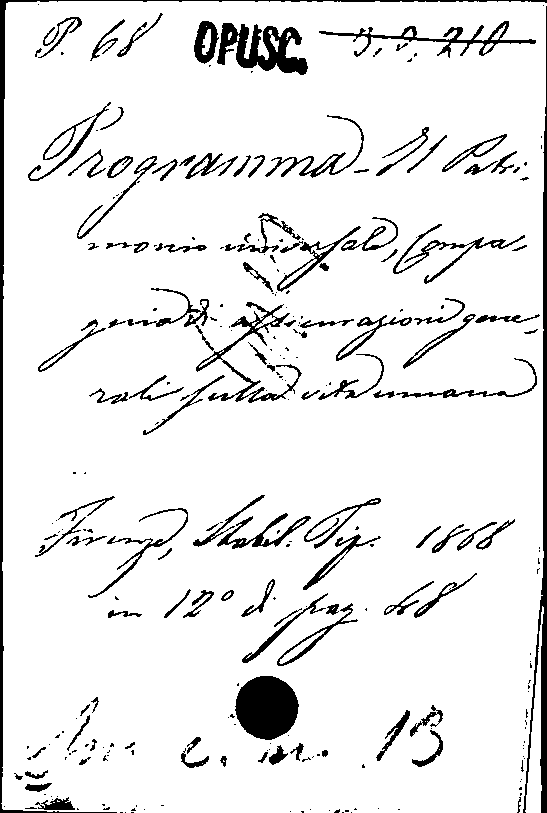 P. 68 OPUSC. 3, 9, 210
Programma - Il Patri-
monio universale, Compa-
gnia di assicurazioni gene-
rali sulla vita umana
Firenze, Stabil. Tip. 1868
in 12° di pag. 48
c. m. 13